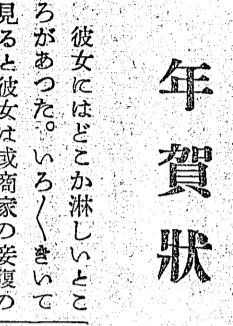 年賀狀
彼女にはどこか淋しいとこ
ろがあつた。いろ〱きいて
見ると彼女は或商家の妾腹の